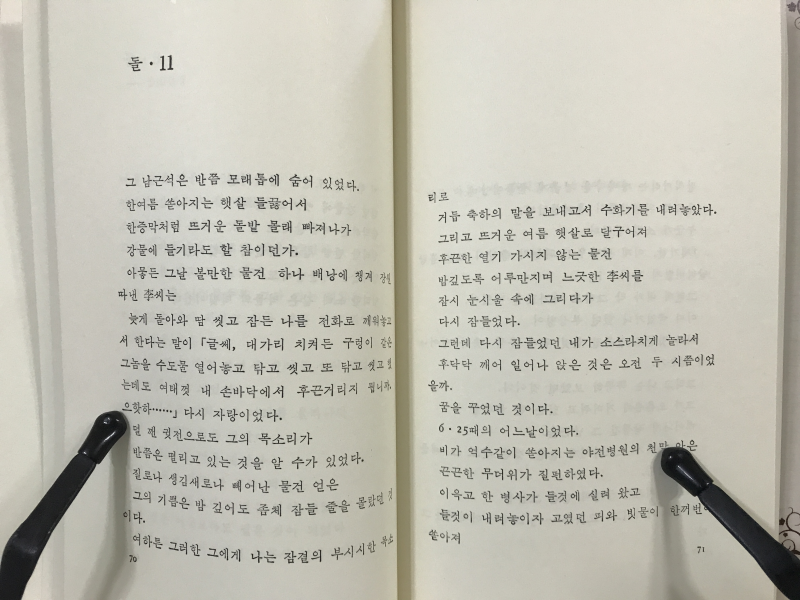 돌 · 11
그 남근석은 반쯤 모래톱에 숨어 있었다.
한여름 쏟아지는 햇살 들끓어서
한증막처럼 뜨거운 돌밭 몰래 빠져나가
강물에 들기라도 할 참이던가.
아뭏든 그날 볼만한 물건 하나 배낭에 챙겨
따낸 李씨는
늦게 돌아와 맘 씻고 잠든 나를 전화로 깨워놓고
서 한다는 말이 「글쎄, 대가리 치켜든 구렁이 같은
그놈을 수도물 열어놓고 닦고 씻고 또 닦고 씻고
는데도 여태껏 내 손바닥에서 후끈거리지 뭡니까.
으핫하……」 다시 자랑이었다.
덜 깬 귓전으로도 그의 목소리가
반쯤은 떨리고 있는 것을 알 수가 있었다.
질로나 생김새로나 빼어난 물건 얻은
그의 기쁨은 밤 깊어도 좀체 잠들 줄을 몰랐던 것
이다.
여하튼 그러한 그에게 나는 잠결의 부시시한 목소
70
티로
거듭 축하의 말을 보내고서 수화기를 내려놓았다.
그리고 뜨거운 여름 햇살로 달구어져
후끈한 열기 가시지 않는 물건
밤깊도록 어루만지며 느긋한 李씨를
잠시 눈시울 속에 그리다가
다시 잠들었다.
그런데 다시 잠들었던 내가 소스라치게 놀라서
후닥닥 깨어 일어나 앉은 것은 오전 두 시쯤이었
을까.
꿈을 꾸었던 것이다.
6 · 25때의 어느날이었다.
비가 억수같이 쏟아지는 야전병원의 천막 안은
끈끈한 무더위가 질펀하였다.
이윽고 한 병사가 들것에 실려 왔고
들것이 내려놓이자 고였던 피와 빗물이 한꺼번에
쏟아져
71